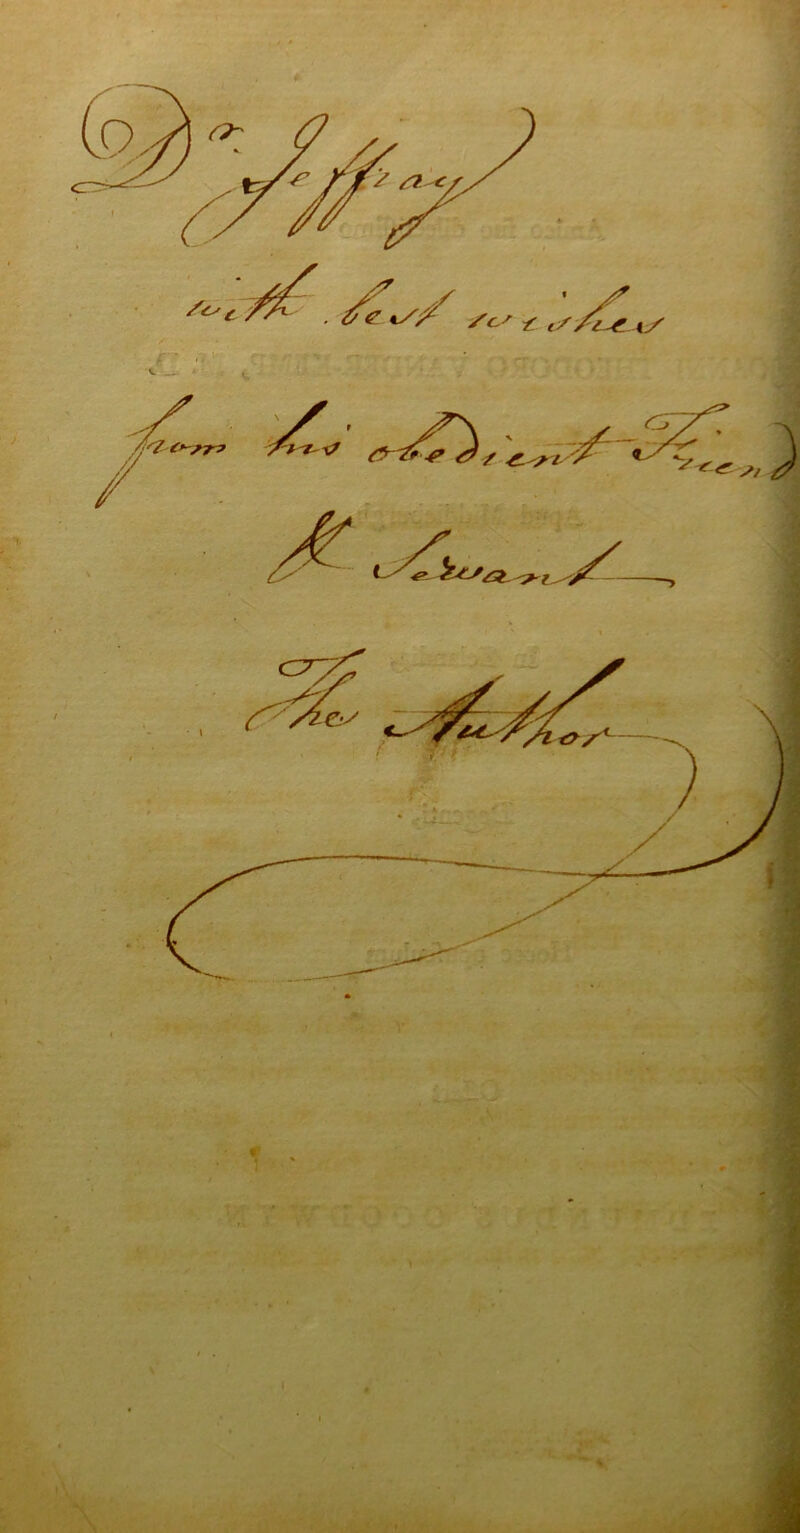 Dr Jeffray
with best wishes
from his obedient Friend
& Servant
The Author